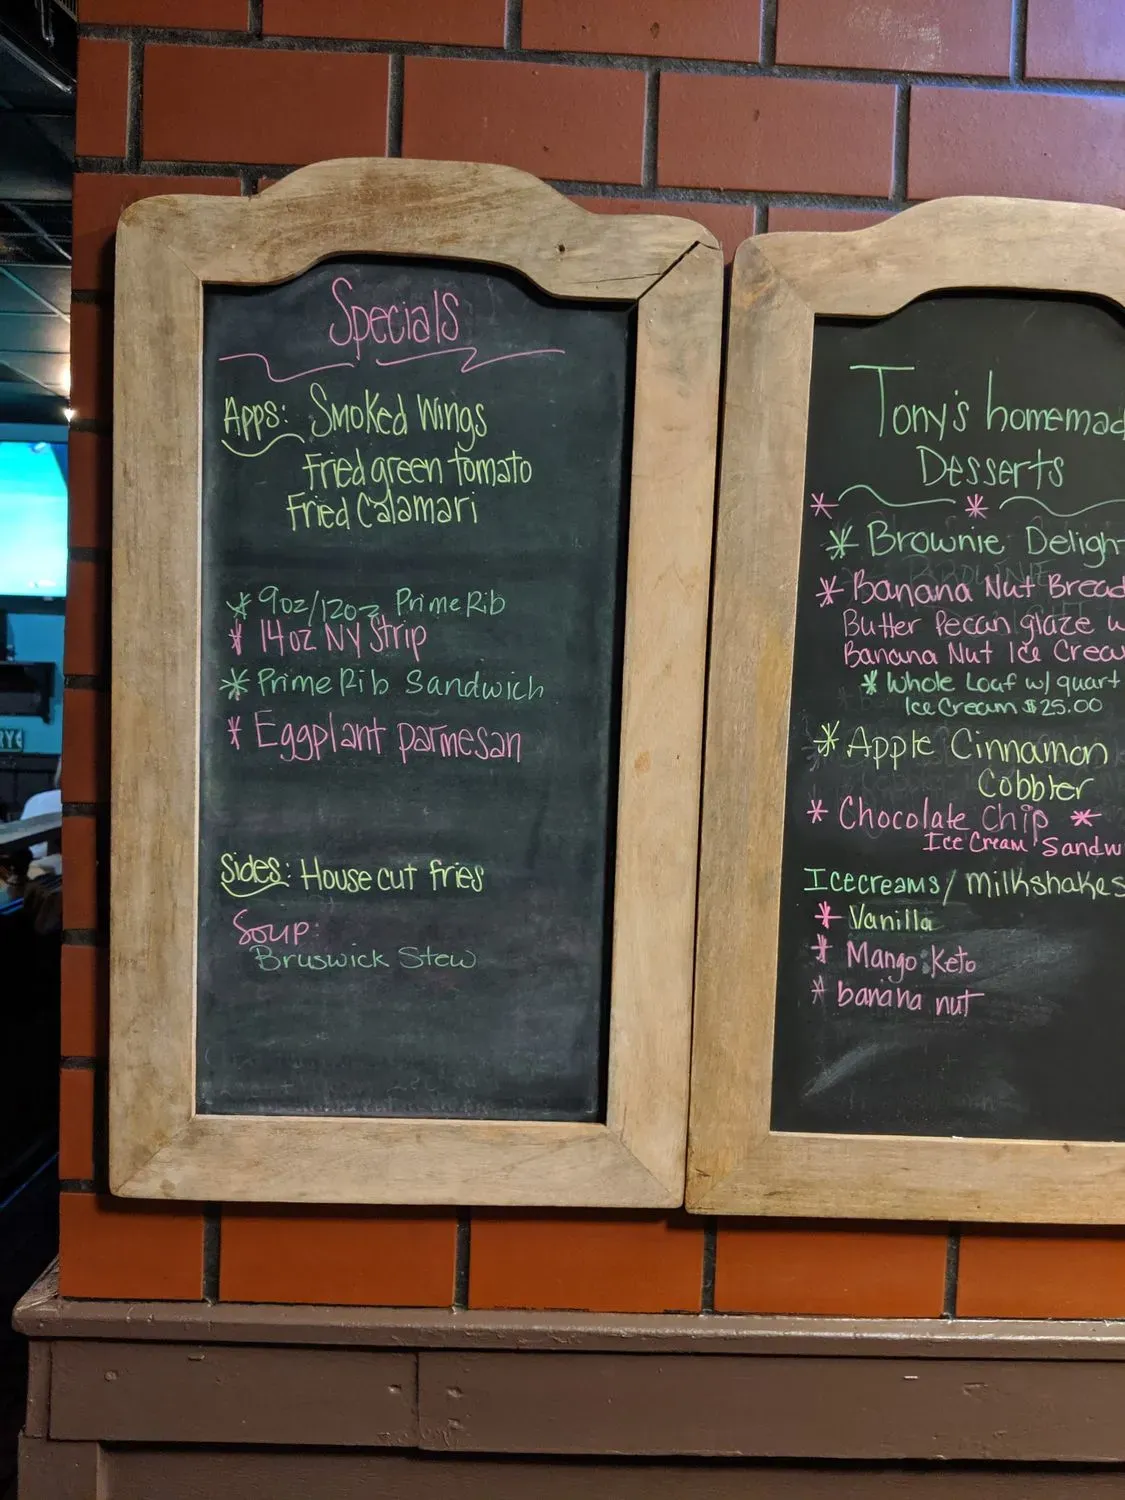 Specials
Apps: Smoked Wings
Fried green tomato
Fried Calamari
* 9oz/12oz Prime Rib
* 14oz NY Strip
* Prime Rib Sandwich
* Eggplant parmesan
Sides: House cut fries
Soup:
Bruswick Stew
Tony's homemad
Desserts
* *
* Brownie Deligh
* Banana Nut Bread
Butter Pecan glaze w
Banana Nut Ice Crea
* Whole Loaf w/ quart
Ice Cream $25.00
* Apple Cinnamon
Cobbler
* Chocolate Chip *
Ice Cream Sandw
Icecreams/Milkshakes
* Vanilla
* Mango Keto
* banana nut